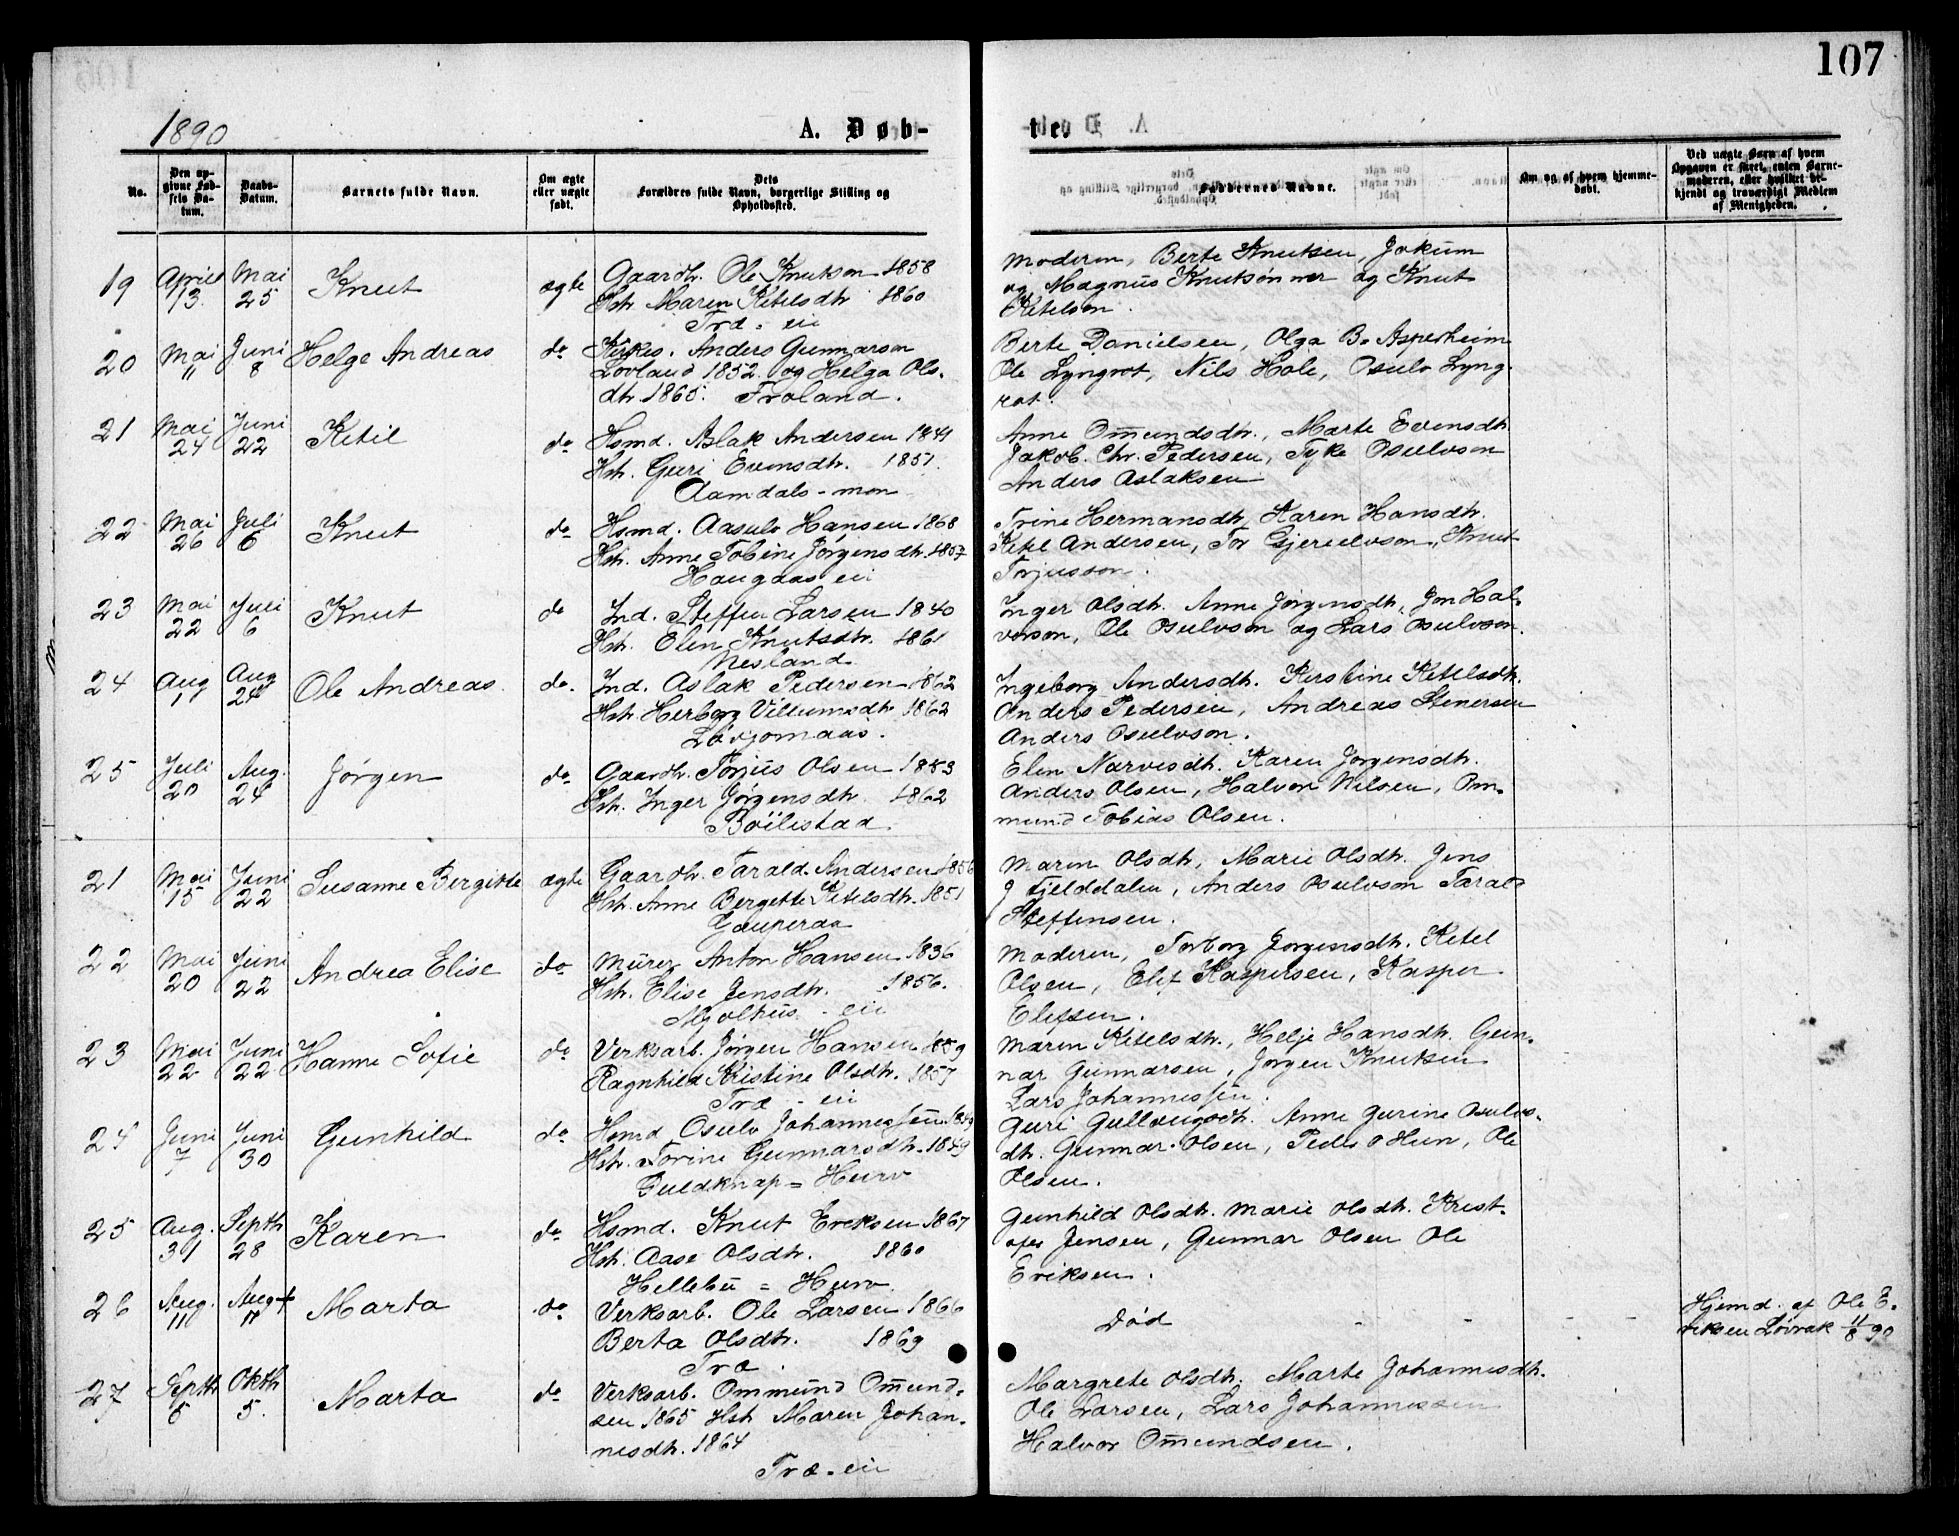 107
1890
A. Døb-
te.
No.
Den op-
givne Fød-
sels Da-
tum.
Daabs-
Datum.
Barnets fulde Navn.
Om ægte
eller uægte
født.
Dets
Forældres fulde Navn, borgerlige Stilling og
Opholdssted.
Faddernes Navne.
Om og af hvem hjemme-
døbt.
Ved uægte Børn af hvem
Opgaven er skeet, enten Barne-
moderen, eller hvilket be-
kjendt og troværdigt Medlem
af Menigheden.
19 April 13. Mai 25 Knut ægte
Gaardb. Ole Knutson 1858
Hstr. Maren Ketelsdtr 1860
Træ - eie
Moderen, Berte Knutsen, Jokum
og Magnus Knutsønner og Knut
Ketelson.
20 Mai 11 Juni 8 Helge Andreas do
Kirkes. Anders Gunnarson
Lovland 1852 og Helga Ols-
dtr 1865. Froland.
Berte Danielsen, Olga B. Asperheim
Ole Lyngrot, Nils Hole, Osulv Lyng-
rot.
21 Mai 24 Juni 22 Ketil do
Hsmd. Aslak Andersen 1841
Hstr. Guri Evensdtr. 1851.
Aamdals-moen
Anne Omundsdtr., Marte Evensdtr
Jakob Chr. Pedersen, Tyke Osulvson
Anders Aslaksen
22 Mai 26 Juli 6 Knut do
Hsmd. Aasulv Hansen 1868
Hstr. Anne Tobine Jørgensdtr. 1857
Haugaas eie
Trine Hermansdtr, Karen Hansdtr.
Ketel Andersen, Tor Gjerulvson, Knut
Torjusson.
23 Mai 22 Juli 6 Knut do
Ind. Steffen Larsen 1840
Hstr. Elen Knutsdtr. 1861
Nesland
Inger Olsdtr. Anne Jørgensdtr, Jon Hal-
vorson, Ole Osulvson og Lars Osulvson.
24 Aug 1 Aug 24 Ole Andreas do.
Ind. Aslak Pedersen 1862
Hstr. Herborg Villumsdtr. 1862
Løvjomaas.
Ingeborg Andersdtr. Kerstine Ketelsdtr.
Anders Pedersen, Andreas Stenersen
Anders Osulvson.
25 Juli 20 Aug. 24 Jørgen do
Gaardbr. Torjus Olsen 1853
Hstr. Inger Jørgensdtr. 1862
Bøilestad
Elen Narvesdtr. Karen Jorgensdtr.
Anders Olsen, Halvor Nilsen, Om-
mund Tobias Olsen.
21 Mai 15 Juni 22 Susanne Bergitte ægte
Gaardbr. Tarald Andersen 1856
Hstr. Anne Bergette Ketelsdtr. 1851
Gauperaa
Maren Olsdtr, Marie Olsdtr. Jens
J Fjelddalen, Anders Osulvson Tarald
Steffensen.
22 Mai 20 Juni 22 Andrea Elise do
Murer Anton Hansen 1836
Hstr. Elise Jensdtr. 1856.
Mjolhus - eie
Moderen, Torborg Jorgensdtr. Ketel
Olsen, Elef Kaspersen, Kasper
Elefsen.
23 Mai 22 Juni 22 Hanne Sofie do
Verksarb. Jørgen Hansen 1859
Ragnhild Kristine Olsdtr. 1857
Træ - eie
Maren Ketelsdtr., Helje Hansdtr. Gun-
nar Gunnarsen, Jørgen Knutsen
Lars Johannessen.
24 Juni 7 Juni 30 Gunhild do
Hsmd Osulv Johannessen 1849
Hstr. Torine Gunnarsdtr. 1849
Guldknap = Hurv
Guri Gullaugsdtr. Anne Gurine Osulvs-
dtr. Gunnar Olsen, Peder O Hurv, Ole
Olsen.
25 Aug. 31 Septbr 28 Karen do
Hsmd. Knut Ereksen 1867
Hstr. Aase Olsdtr. 1860
Hellebu = Hurv
Gunhild Olsdtr. Marie Olsdtr. Krist-
ofer Jensen, Gunnar Olsen Ole
Eriksen.
26 Aug. 11 Aug + 11 Marta do
Verksarb. Ole Larsen 1866
Berta Olsdtr. 1869
Træ.
Død - - -
Hjemd. af Ole E-
riksen Løvrak 11/8 90
27 Septbr 5 Oktbr 5. Marta do
Verksarb. Ommund Omund-
sen 1865 Hstr Maren Johan-
nesdtr. 1864
Træ-eie
Margrete Olsdtr. Marte Johannesdtr.
Ole Larsen, Lars Johannessen
Halvor Omundsen.